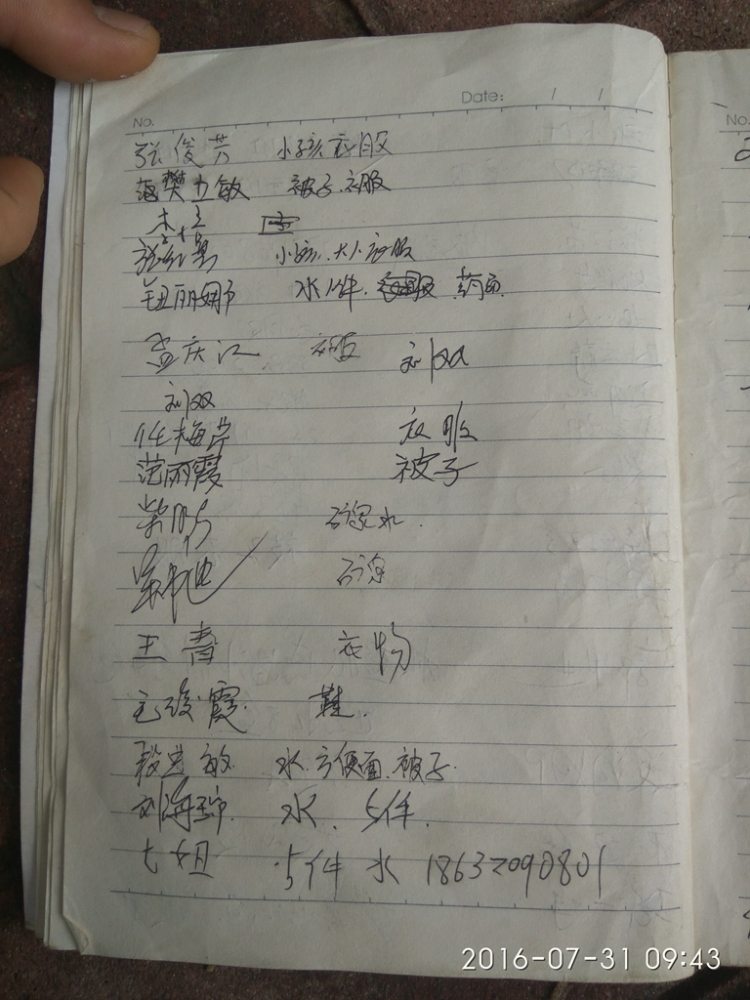 Date: / /
No.
No.
张俊芳 小孩衣服
樊立敏 被子.衣服
小孩.大人衣服
丽娜 水1件. 药面
孟庆江 刘双
刘双
任梅芹 衣服
范丽霞 被子
柴 矿泉水.
矿泉
王青 衣物
霞. 鞋.
段兰敏 水.方便面.被子.
刘海琼. 水. 5件.
七姐 5件水 18632090801
2016-07-31 09:43